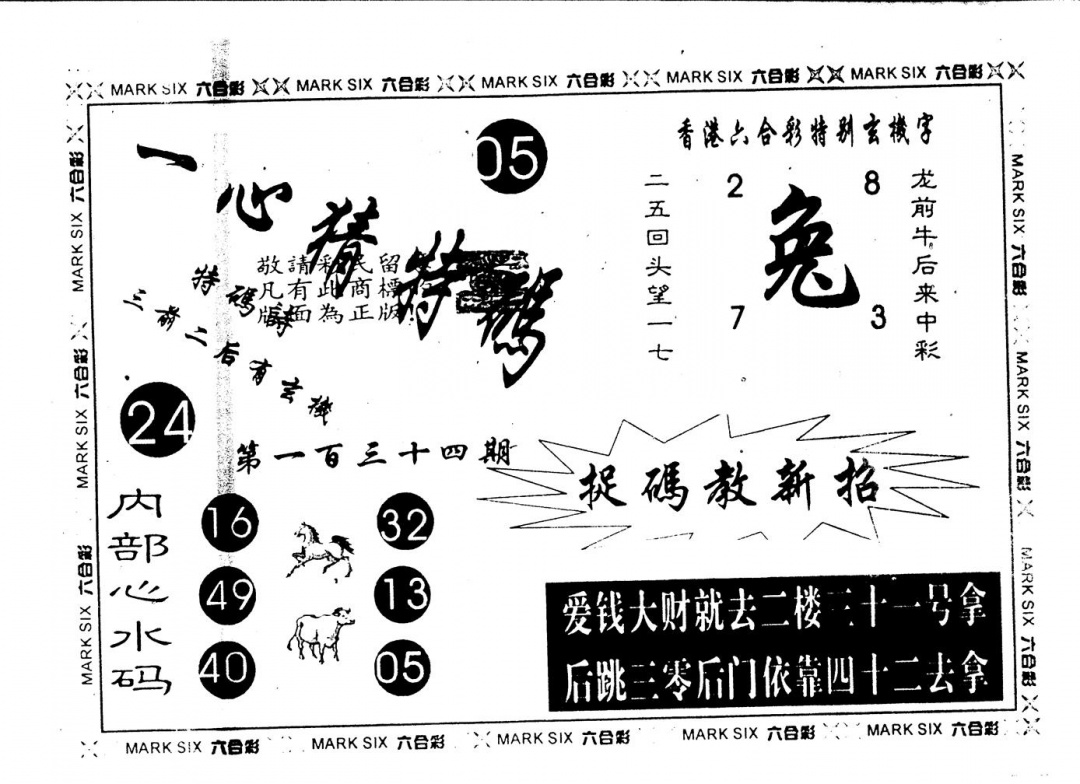 MARK SIX 六合彩 MARK SIX 六合彩 MARK SIX 六合彩 MARK SIX 六合彩 MARK SIX 六合彩
MARK SIX 六合彩
MARK SIX 六合彩
MARK SIX 六合彩
一心猜特碼
05
敬請彩民留
凡有此商標
版面為正版!
特碼詩
三前二后有玄機
24
第一百三十四期
香港六合彩特别玄機字
二五回头望一七
2
8
兔
7
3
龙前牛后来中彩
捉碼教新招
内部心水码
16
32
49
13
40
05
爱钱大财就去二楼三十一号拿
后跳三零后门依靠四十二去拿
MARK SIX 六合彩
MARK SIX 六合彩
MARK SIX 六合彩
MARK SIX 六合彩 MARK SIX 六合彩 MARK SIX 六合彩 MARK SIX 六合彩 MARK SIX 六合彩